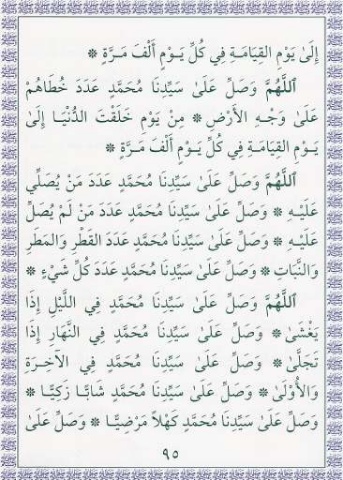 إِلَىٰ يَوْمِ القِيَامَةِ فِي كُلِّ يَوْمٍ أَلْفَ مَرَّةٍ ❁
اَللَّهُمَّ وَصَلِّ عَلَىٰ سَيِّدِنَا مُحَمَّدٍ عَدَدَ خُطَاهُمْ
عَلَىٰ وَجْهِ الأَرْضِ ❁ مِنْ يَوْمِ خَلَقْتَ الدُّنْيَا إِلَىٰ
يَوْمِ القِيَامَةِ فِي كُلِّ يَوْمٍ أَلْفَ مَرَّةٍ ❁
اَللَّهُمَّ وَصَلِّ عَلَىٰ سَيِّدِنَا مُحَمَّدٍ عَدَدَ مَنْ يُصَلِّي
عَلَيْهِ ❁ وَصَلِّ عَلَىٰ سَيِّدِنَا مُحَمَّدٍ عَدَدَ مَنْ لَمْ يُصَلِّ
عَلَيْهِ ❁ وَصَلِّ عَلَىٰ سَيِّدِنَا مُحَمَّدٍ عَدَدَ القَطْرِ وَالمَطَرِ
وَالنَّبَاتِ ❁ وَصَلِّ عَلَىٰ سَيِّدِنَا مُحَمَّدٍ عَدَدَ كُلِّ شَيْءٍ ❁
اَللَّهُمَّ وَصَلِّ عَلَىٰ سَيِّدِنَا مُحَمَّدٍ فِي اللَّيْلِ إِذَا
يَغْشَىٰ ❁ وَصَلِّ عَلَىٰ سَيِّدِنَا مُحَمَّدٍ فِي النَّهَارِ إِذَا
تَجَلَّىٰ ❁ وَصَلِّ عَلَىٰ سَيِّدِنَا مُحَمَّدٍ فِي الآخِرَةِ
وَالأُوْلَىٰ ❁ وَصَلِّ عَلَىٰ سَيِّدِنَا مُحَمَّدٍ شَابًّا زَكِيًّا ❁
وَصَلِّ عَلَىٰ سَيِّدِنَا مُحَمَّدٍ كَهْلاً مَرْضِيًّا ❁ وَصَلِّ عَلَىٰ
٩٥